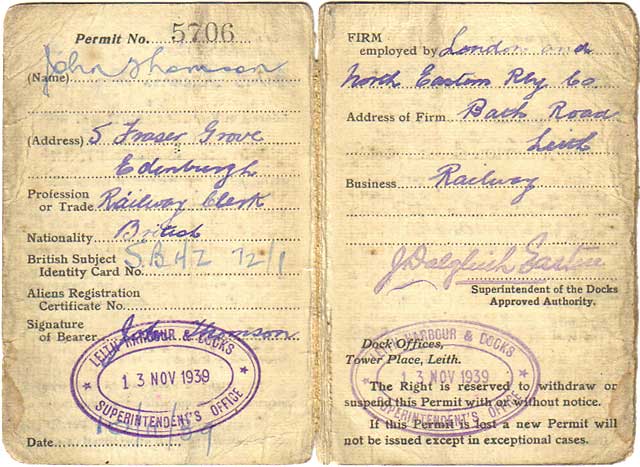 Permit No. 5706
John Thomson
(Name)
(Address) 5 Fraser Grove
Edinburgh
Profession
or Trade Railway Clerk
Nationality British
British Subject
Identity Card No. SBHZ 72/1
Aliens Registration
Certificate No.
Signature
of Bearer John Thomson
LEITH HARBOUR & DOCKS
13 NOV 1939
SUPERINTENDENT'S OFFICE
Date
FIRM
employed by London and
North Eastern Rly Co
Address of Firm Bath Road
Leith
Business Railway
J Dalgleish
Superintendent of the Docks
Approved Authority.
Dock Offices,
Tower Place, Leith.
LEITH HARBOUR & DOCKS
13 NOV 1939
SUPERINTENDENT'S OFFICE
The Right is reserved to withdraw or
suspend this Permit with or without notice.
If this Permit is lost a new Permit will
not be issued except in exceptional cases.